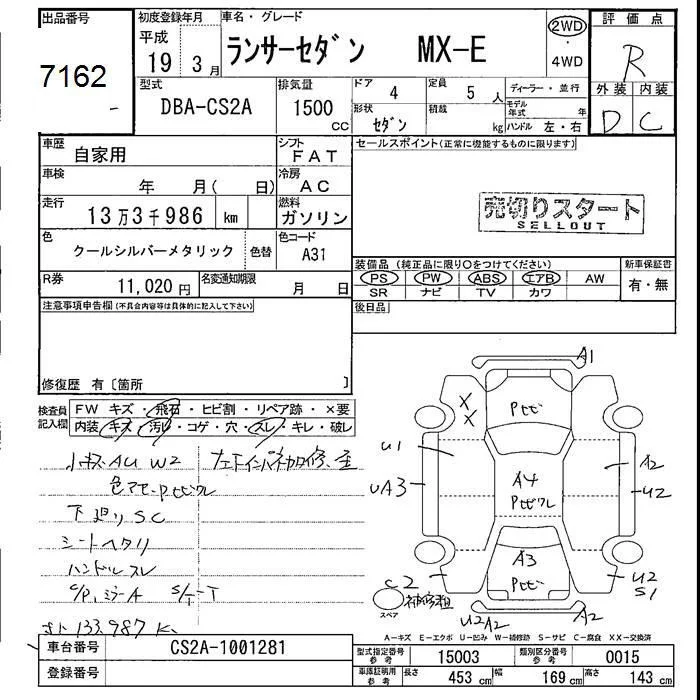 出品番号 初度登録年月 車名・グレード 評価点
7162 平成 19 3月 ランサーセダン MX-E 2WD・4WD R
型式 排気量 ドア 定員 ディーラー・並行 外装 内装
DBA-CS2A 1500 CC 4 5人 モデル年式 年 D C
形状 セダン 積載 kg ハンドル 左・右
車歴 自家用 シフト FAT セールスポイント(正常に機能するものに限ります)
車検 年 月( 日) 冷房 AC
走行 13万3千986 km 燃料 ガソリン 売切りスタート
SELLOUT
色 クールシルバーメタリック 色替 色コード A31
装備品(純正品に限り○をつけてください) 新車保証書
PS PW ABS エアB AW 有・無
SR ナビ TV カワ
R券 11,020円 名変通知期限 月 日 後日品
注意事項申告欄(不具合内容等は具体的に記入して下さい)
修復歴 有〔箇所 〕
検査員記入欄 FW キズ・飛石・ヒビ割・リペア跡・×要
内装・キズ・汚レ・コゲ・穴・スレ・キレ・破レ
小キズAU W2
下廻りSC
シートヘタリ
ハンドルスレ
C/P,ミラーA S/T-T
133,987K
A1
XX
U1
UA3
A4
A3
A2
U2
C2
スペア
U2
S1
U2A2
A2
A-キズ E-エクボ U-凹み W-補修跡 S-サビ C-腐食 XX-交換済
車台番号 CS2A-1001281 型式指定番号 参考 15003 類別区分番号 参考 0015
登録番号 車庫証明用 参考 長さ 453cm 幅 169cm 高さ 143cm